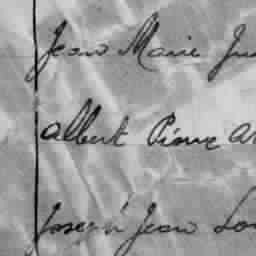 Jean Marie
Albert Pierre
Joseph Jean